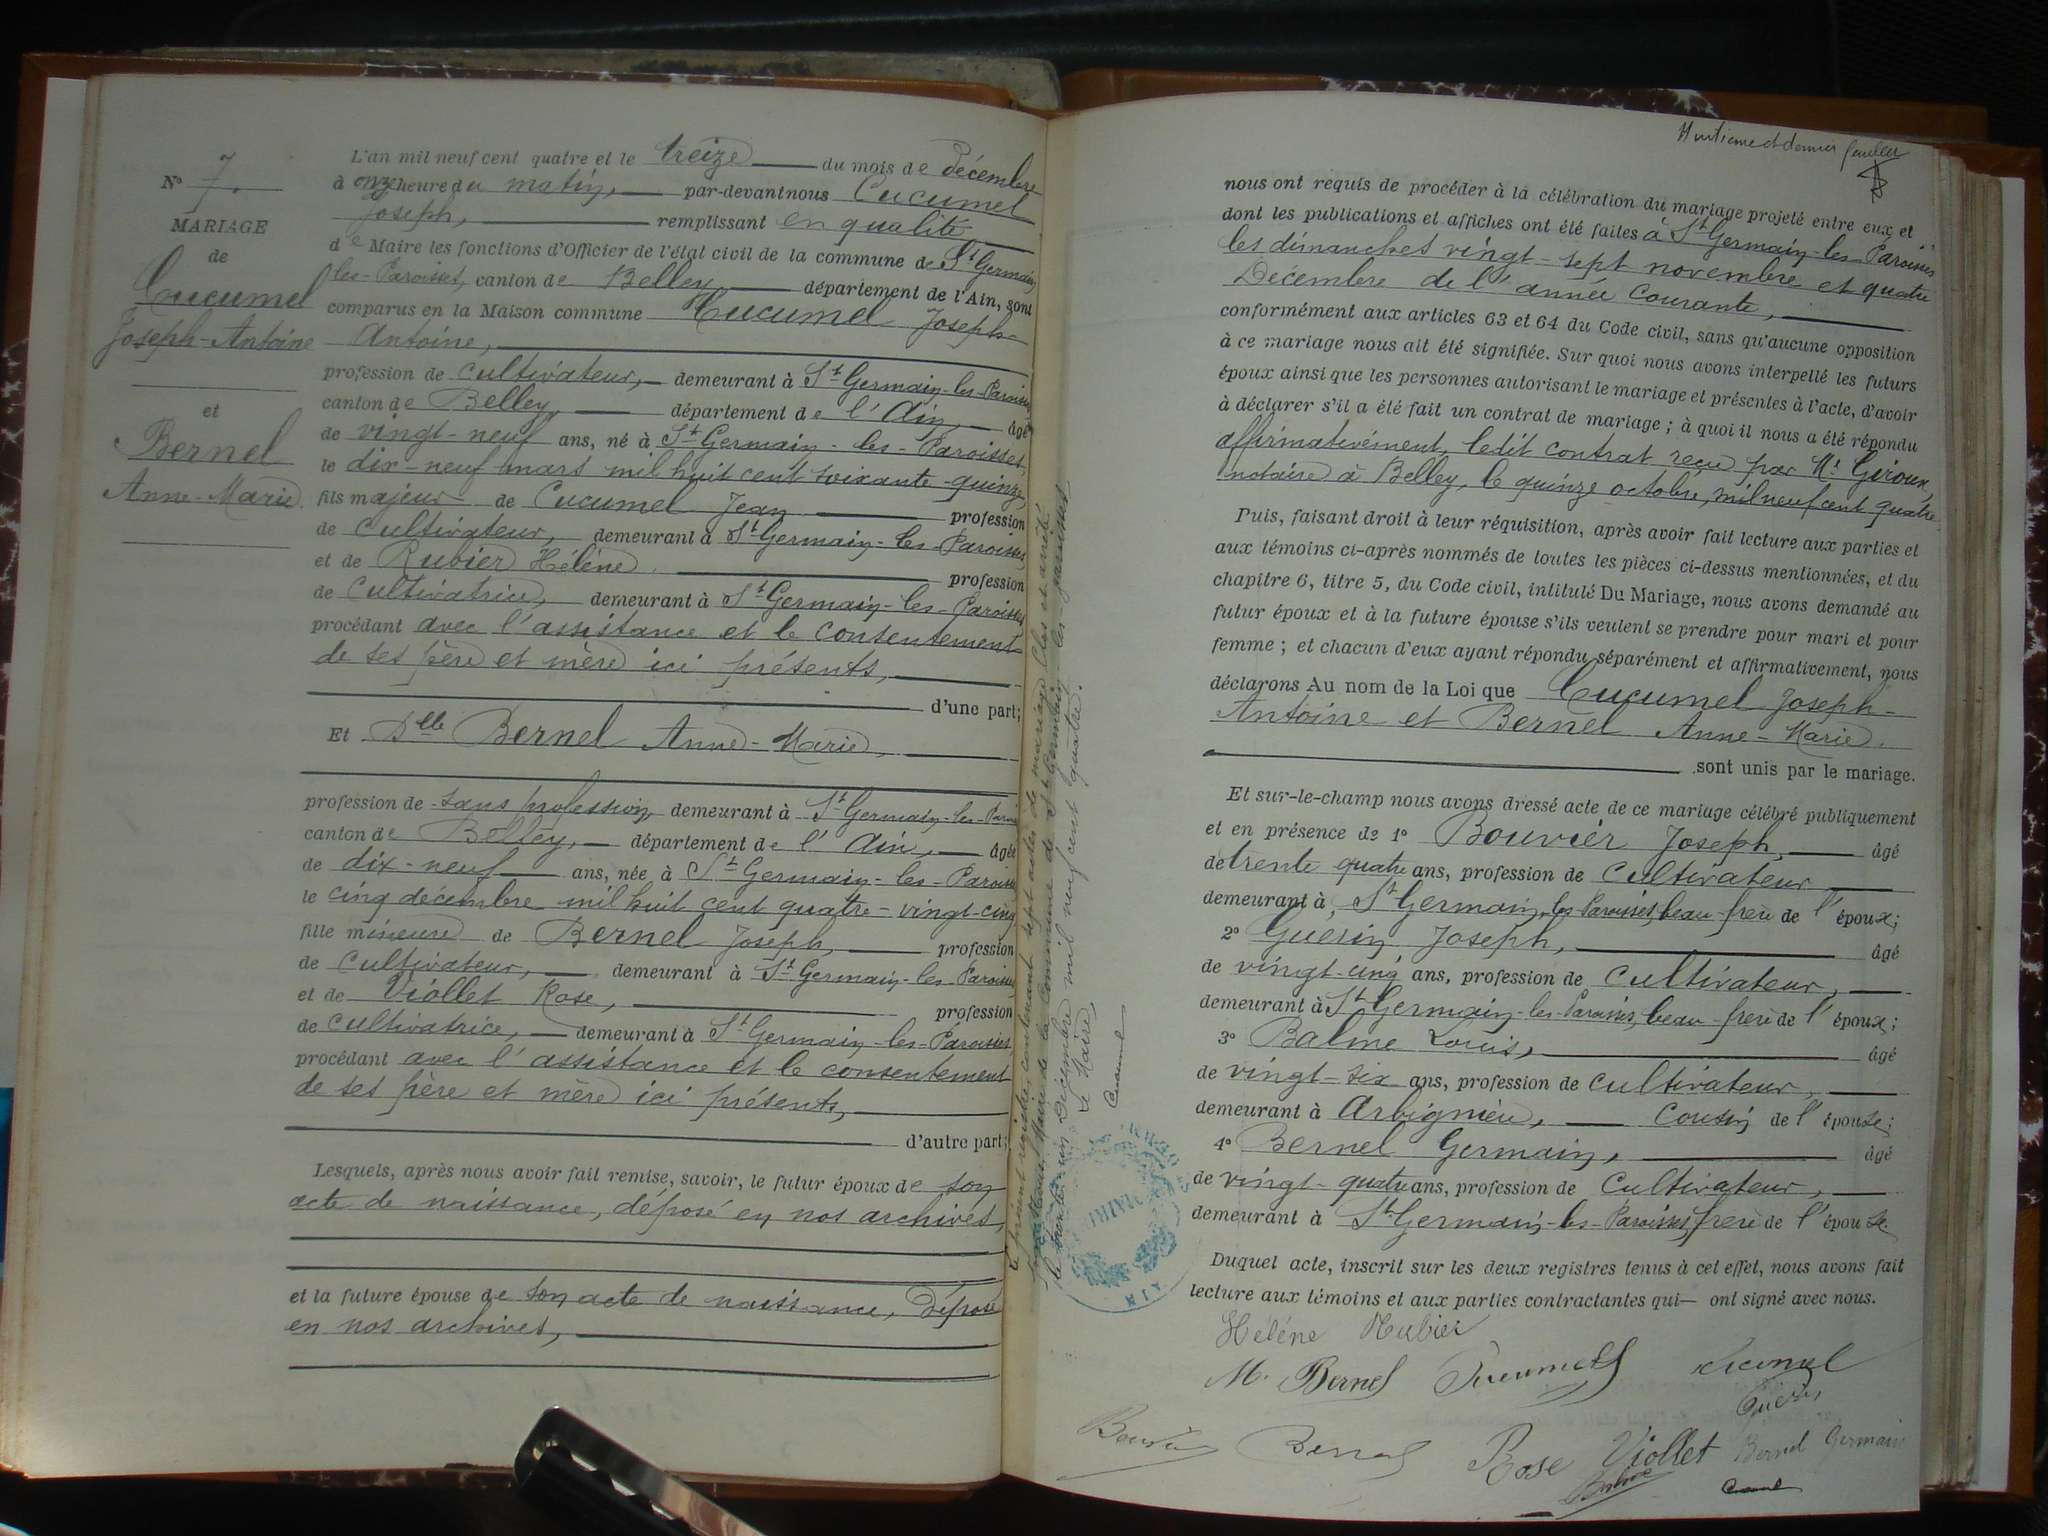 N° 7.
MARIAGE
de
Cucumel
Joseph-Antoine
et
Bernel
Anne-Marie.
L'an mil neuf cent quatre et le treize du mois de Décembre
à onze heure du matin, par-devant nous Cucumel
Joseph, remplissant en qualité
de Maire les fonctions d'Officier de l'état civil de la commune de St Germain
les-Paroisses, canton de Belley, département de l'Ain, sont
comparus en la Maison commune Cucumel Joseph-
Antoine,
profession de cultivateur, demeurant à St Germain-les-Paroisses
canton de Belley, département de l'Ain, âgé
de vingt-neuf ans, né à St Germain-les-Paroisses,
le dix-neuf mars mil huit cent soixante-quinze,
fils majeur de Cucumel Jean profession
de cultivateur, demeurant à St Germain-les-Paroisses
et de Rubier Hélène. profession
de cultivatrice, demeurant à St Germain-les-Paroisses
procédant avec l'assistance et le consentement
de ses père et mère ici présents,
d'une part;
Et Dlle Bernel Anne-Marie,
profession de sans profession, demeurant à St Germain-les-Paroisses
canton de Belley, département de l'Ain, âgée
de dix-neuf ans, née à St Germain-les-Paroisses
le cinq décembre mil huit cent quatre-vingt-cinq
fille mineure de Bernel Joseph, profession
de cultivateur, demeurant à St Germain-les-Paroisses,
et de Viollet Rose, profession
de cultivatrice, demeurant à St Germain-les-Paroisses,
procédant avec l'assistance et le consentement
de ses père et mère ici présents,
d'autre part;
Lesquels, après nous avoir fait remise, savoir, le futur époux de son
acte de naissance, déposé en nos archives,
et la future épouse de son acte de naissance, déposé
en nos archives,
Le présent registre, contenant sept actes de mariage clos et arrêté
Maire de la Commune de St Germain les-paroisses
le trente un décembre mil neuf cent quatre.
Le Maire,
Cucumel
MAIRIE
AIN
Huitième et dernier feuillet
nous ont requis de procéder à la célébration du mariage projeté entre eux et
dont les publications et affiches ont été faites à St Germain-les-Paroisses
les dimanches vingt-sept novembre et quatre
Décembre de l'année courante,
conformément aux articles 63 et 64 du Code civil, sans qu'aucune opposition
à ce mariage nous ait été signifiée. Sur quoi nous avons interpellé les futurs
époux ainsi que les personnes autorisant le mariage et présentes à l'acte, d'avoir
à déclarer s'il a été fait un contrat de mariage; à quoi il nous a été répondu
affirmativement, ledit contrat reçu par Me Giroux,
notaire à Belley, le quinze octobre, mil neuf cent quatre
Puis, faisant droit à leur réquisition, après avoir fait lecture aux parties et
aux témoins ci-après nommés de toutes les pièces ci-dessus mentionnées, et du
chapitre 6, titre 5, du Code civil, intitulé Du Mariage, nous avons demandé au
futur époux et à la future épouse s'ils veulent se prendre pour mari et pour
femme; et chacun d'eux ayant répondu séparément et affirmativement, nous
déclarons Au nom de la Loi que Cucumel Joseph-
Antoine et Bernel Anne-Marie.
sont unis par le mariage.
Et sur-le-champ nous avons dressé acte de ce mariage célébré publiquement
et en présence de 1° Bouvier Joseph, âgé
de trente quatre ans, profession de cultivateur
demeurant à St Germain-les-Paroisses, beau-frère de l'époux;
2° Guerin Joseph, âgé
de vingt-cinq ans, profession de cultivateur,
demeurant à St Germain-les-Paroisses, beau-frère de l'époux;
3° Balme Louis, âgé
de vingt-six ans, profession de cultivateur,
demeurant à Arbignieu, cousin de l'épouse;
4° Bernel Germain, âgé
de vingt-quatre ans, profession de cultivateur,
demeurant à St Germain-les-Paroisses, frère de l'épouse.
Duquel acte, inscrit sur les deux registres tenus à cet effet, nous avons fait
lecture aux témoins et aux parties contractantes qui ont signé avec nous.
Hélène Rubier
M. Bernel Cucumel Cucumel
Guerin
Bouvier Bernel Rose Viollet Bernel Germain
Balme Cucumel